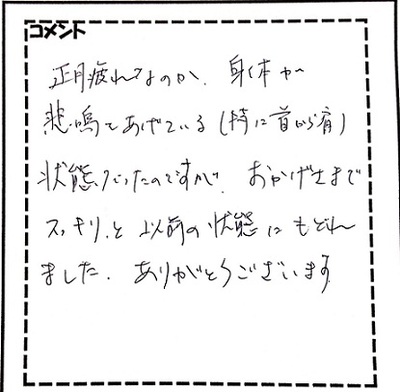 コメント
正月疲れなのか、身体が
悲鳴をあげている（特に首から肩）
状態だったのですが、おかげさまで
スッキリと以前の状態にもどれ
ました。ありがとうございます